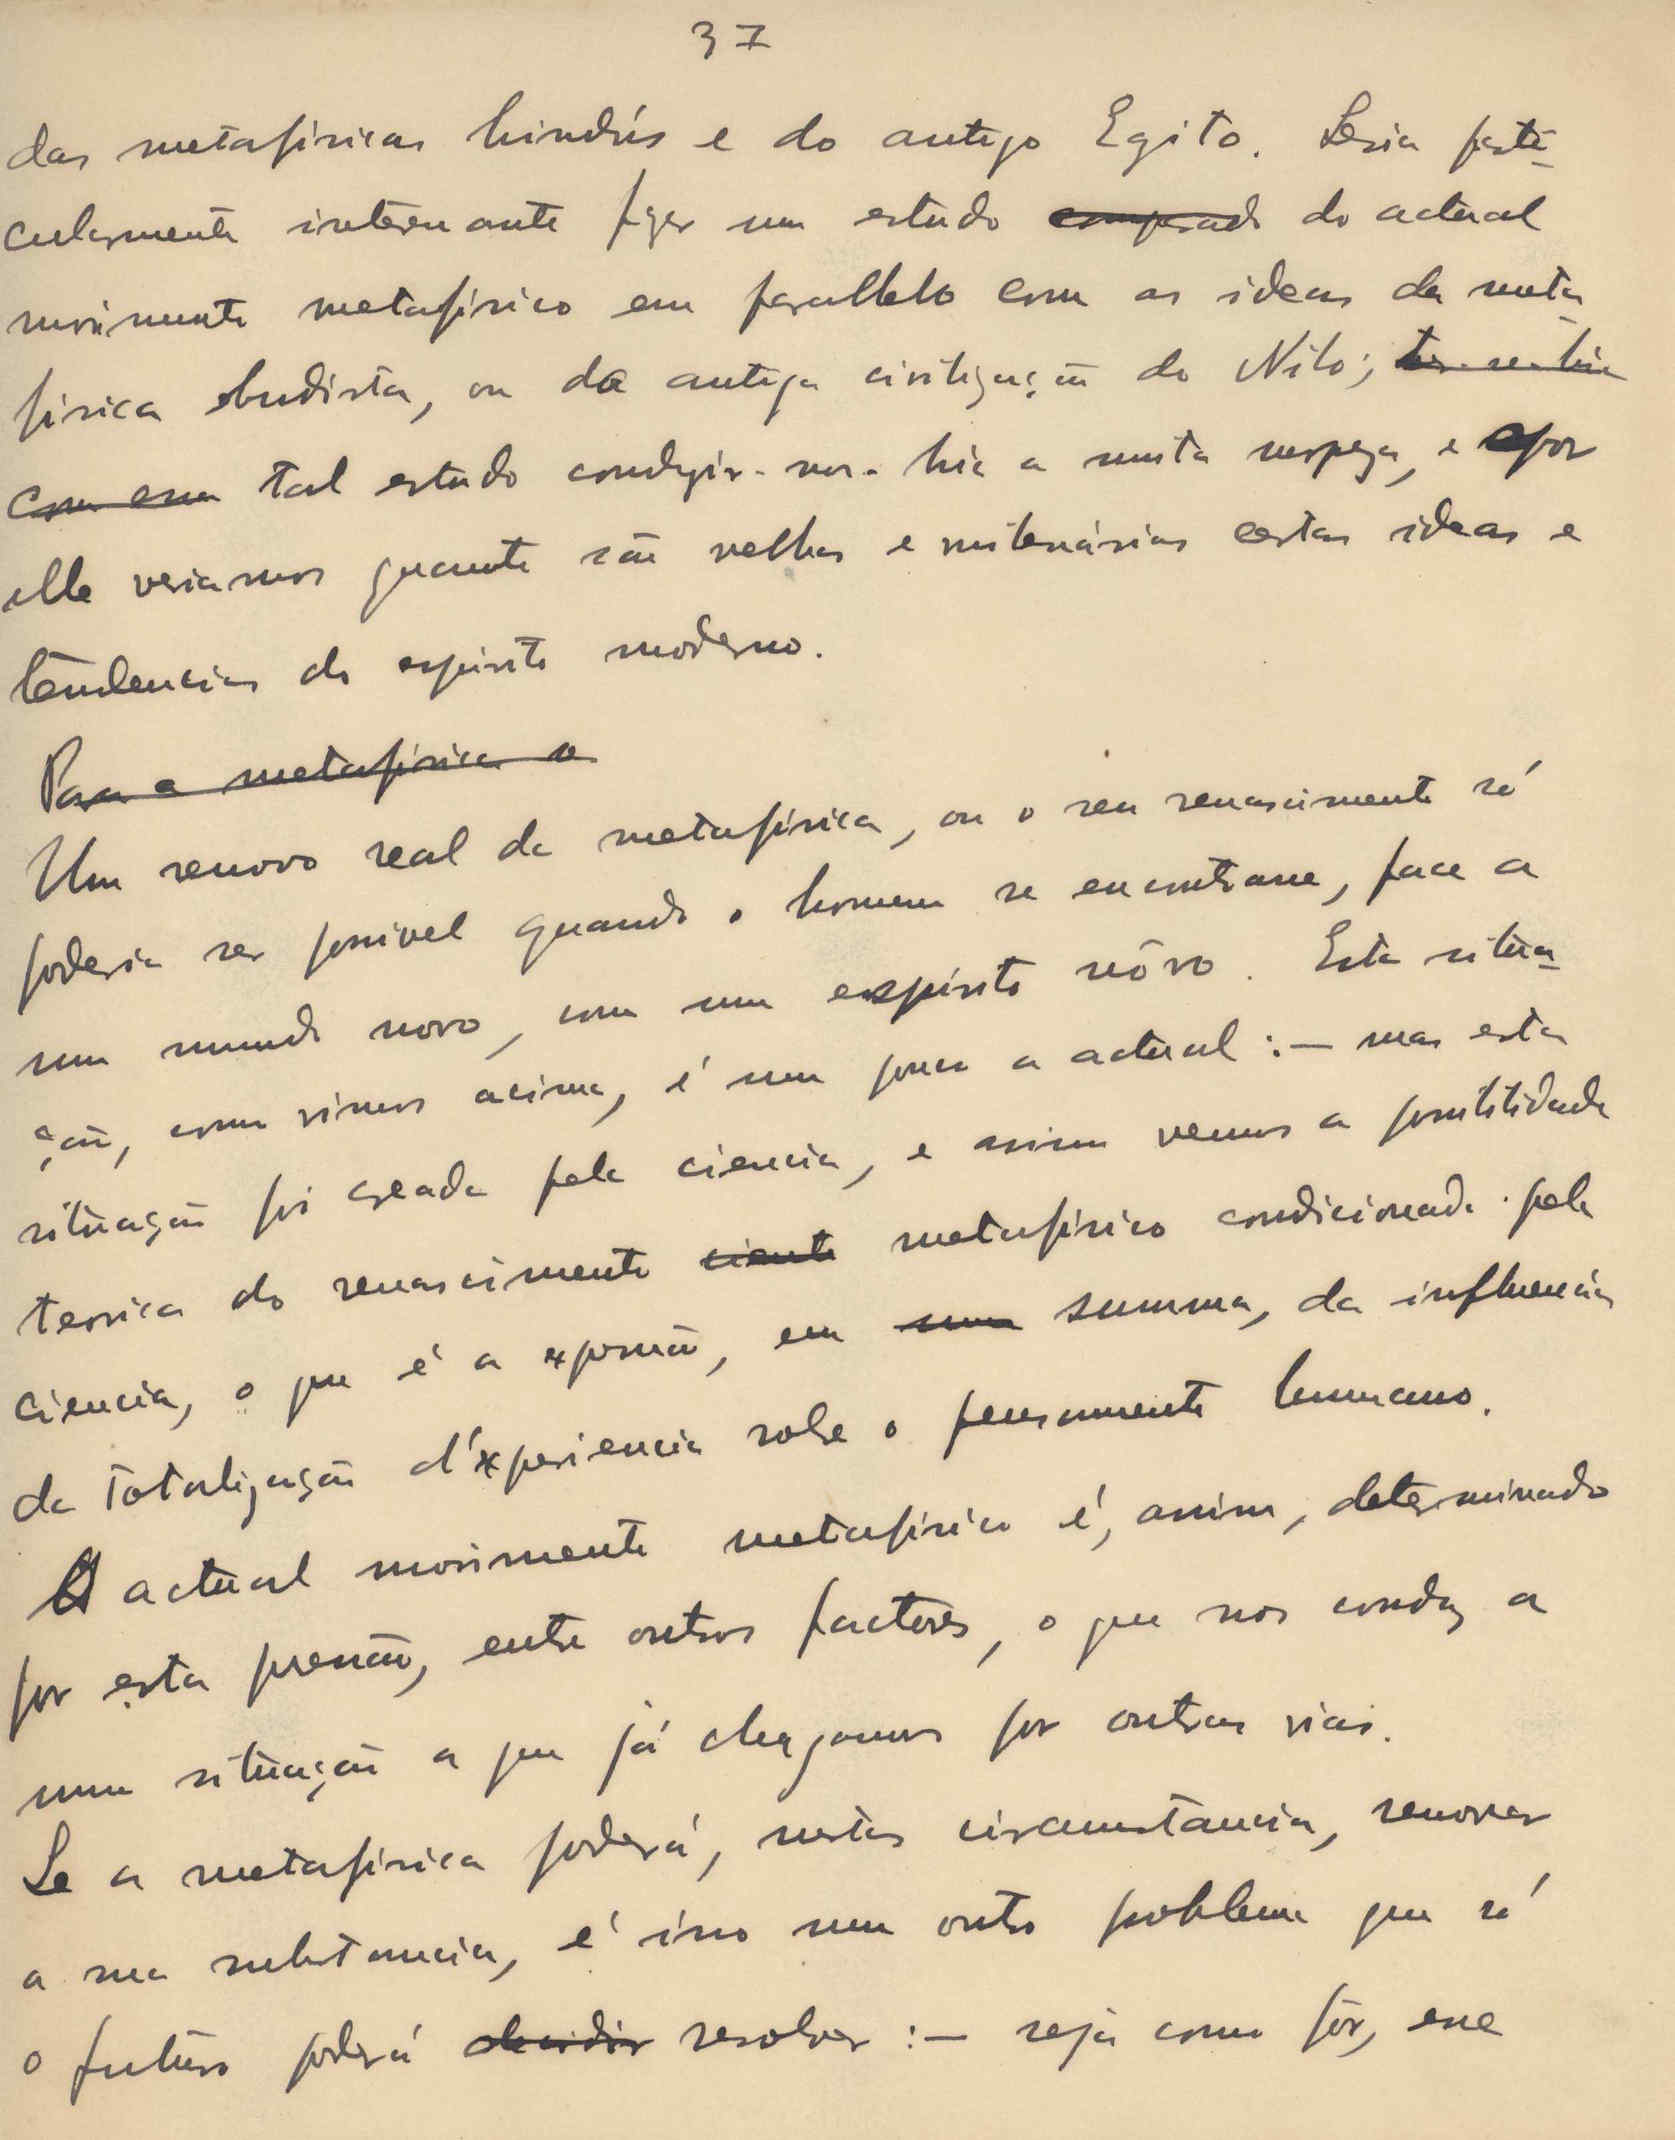 37
das metafisicas hindús e do antigo Egito. Seria parti-
cularmente interessante fazer um estudo comparado do actual
movimento metafisico em parallelo com as ideas da meta-
fisica budista, ou da antiga civilização do Nilo; ter-se-hia
com essa tal estudo conduzir-nos-hia a muita surpeza, e por
elle veriamos quanto são velhas e milenárias certas ideas e
tendencias do espirito moderno.
Para a metafisica o
Um renovo real da metafisica, ou o seu renascimento só
poderia ser possivel quando o homem se encontrasse, face a
um mundo novo, com um espirito nôvo. Esta situa-
ção, como vimos acima, é um pouco a actual :— mas esta
situação foi creada pela ciencia, e assim vemos a possibilidade
teorica do renascimento cienti metafisico condicionado pela
ciencia, o que é a expressão, em suma summa, da influencia
da totalização d'experiencia sobre o pensamento humano.
O actual movimento metafisico é, assim, determinado
por esta pressão, entre outros factores, o que nos conduz a
uma situação a que já chegamos por outras vias.
Se a metafisica poderá, nestas circumstancia, renovar
a sua substancia, é isso um outro problema que só
o futuro poderá decidir resolver :— seja como fôr, esse